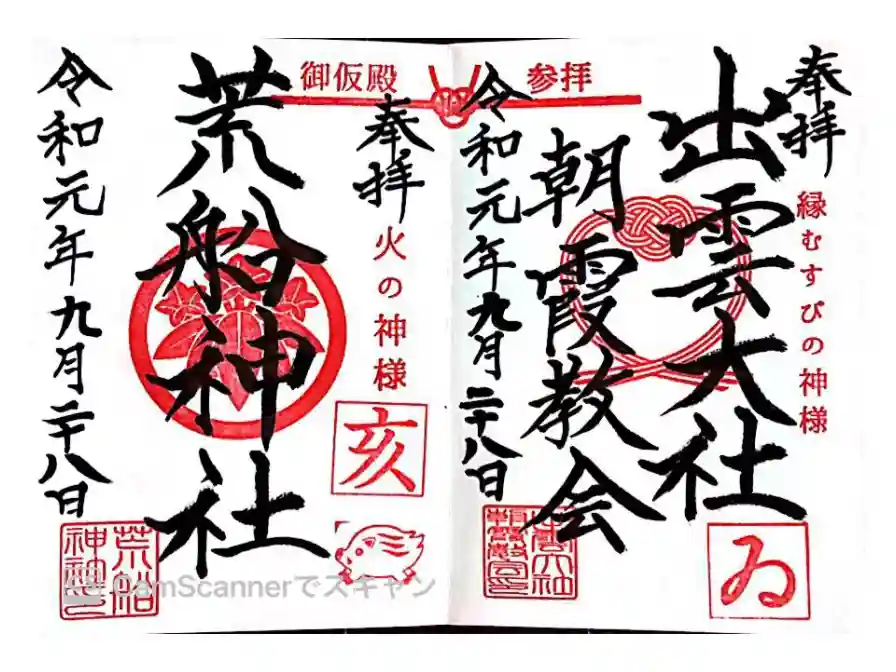 奉拝
出雲大社
縁むすびの神様
朝霞教会
令和元年九月二十八日
ゐ
御仮殿 参拝
奉拝
火の神様
荒船神社
令和元年九月二十八日
亥
荒船
神社
CamScannerでスキャン